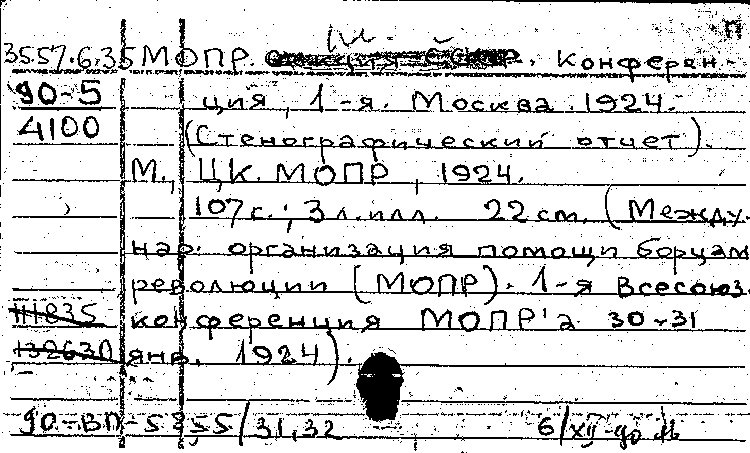 П
3557.6.35 МОПР. Конферен-
90-5 ция, 1-я. Москва. 1924.
4100 (Стенографический отчет).
М., ЦК. МОПР, 1924.
107 с.; 3 л. илл. 22 cm. (Между-
нар. организация помощи борцам
революции (МОПР). 1-я Всесоюз.
111835 конференция МОПР'а 30-31
132630 янв. 1924).
90-ВП-5 /31,32 6/XII-